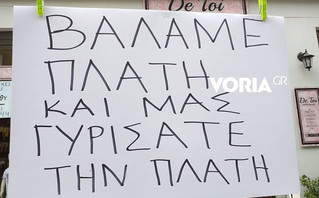 De Toi
De Toi
ΒΑΛΑΜΕ
ΠΛΑΤΗ
VORIA.GR
ΚΑΙ ΜΑΣ
ΓΥΡΙΣΑΤΕ
ΤΗΝ ΠΛΑΤΗ